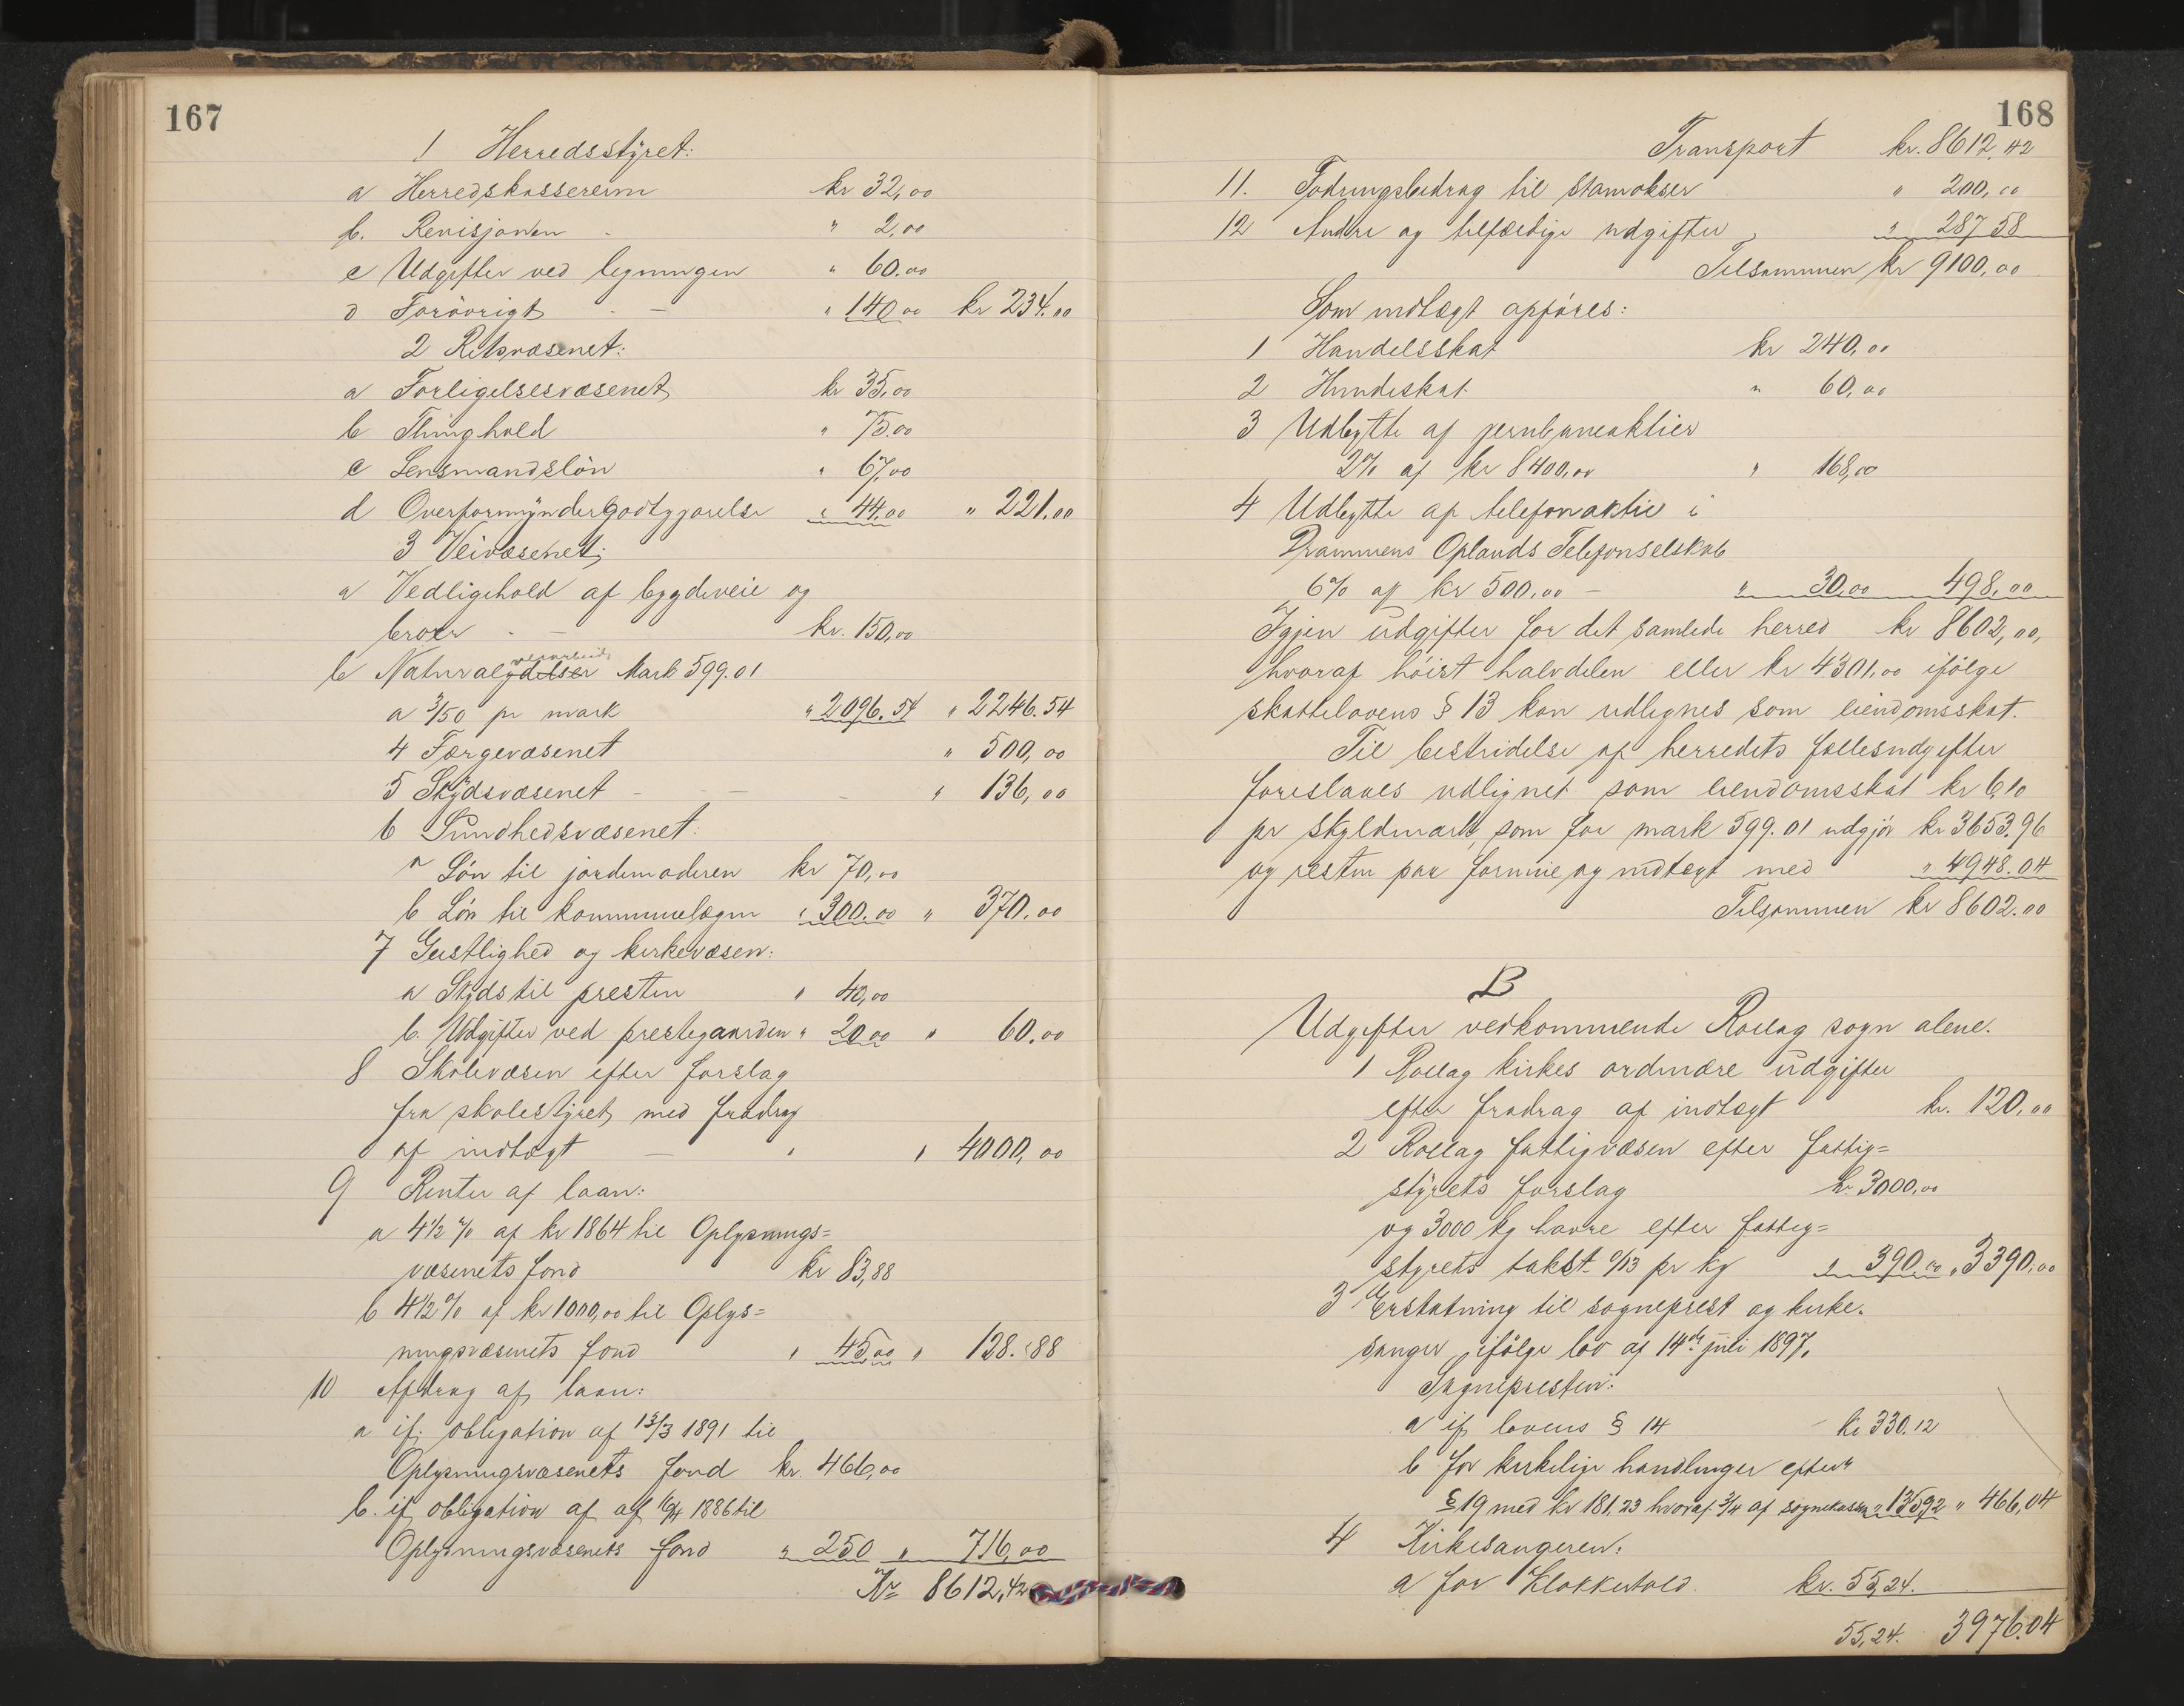 167
1 Herredsstÿret:
a Herredskassereren kr 32,00
b. Revisjonen - " 2,00
c Udgifter ved ligningen " 60.00
d Forövrigt - - " 140 00 kr 234.00
2 Retsvæsenet:
a Forligelsesvæsenet kr 35,00
b Thinghold " 75.00
c Lensmandslön " 67,00
d Overformÿndergodtgjørelse " 44.00 " 221.00
3 Veivæsenet;
a Vedligehold af bygdeveie og
broer - - kr. 150,00
veiarbeide
b Naturalydelser Mark 599.01
a 3/50 pr mark " 2096.54 " 2246.54
4 Færgevæsenet " 500,00
5 Skÿdsvæsenet - - - " 136,00
6 Sundhedsvæsenet:
a Lön til jordemoderen kr 70,00
b Lön til kommunelægen " 300.00 " 370.00
7 Geistlighed og kirkevæsen:
a Skyds til presten " 40,00
b. Udgifter ved prestegaarden " 20 00 " 60.00
8 Skolevæsen efter forslag
fra skolestÿret med fradrag
af indtægt - " " 4000,00
9 Renter af laan:
a 4 1/2 % af kr 1864 til Oplysnings=
væsenets fond kr 83,88
b 4 1/2 % af kr 1000,00 til Oplys=
ningsvæsenets fond " 45,00 " 128.88
10 Afdrag af laan:
a if. obligation af 13/3 1891 til
Oplysningsvæsenets fond kr. 466,00
b. if obligation af af 1886 til
Oplysningsvæsenets fond " 250 " 716,00
Kr 8612,42
168
Transport kr. 8612,42
11. Fodringsbidrag til stamokser " 200,00
12 Andre og tilfældige udgifter " 287 58
Tilsammen kr 9100,00
Som indtægt opføres:
1 Handelsskat kr 240,00
2 Hundeskat " 60,00
3 Udbytte af jernbaneaktier
2% af kr 8400,00 " 168,00
4 Udbytte af telefonaktie i
Drammens Oplands Telefonselskab
6% af kr 500,00 - " 30,00 498,00
Igjen udgifter for det samlede herred kr 8602,00,
hvoraf höist halvdelen eller kr 4301,00 ifölge
skattelovens § 13 kan udlignes som eiendomsskat.
Til bestridelse af herredets fællesudgifter
foreslaaes udlignet som eiendomsskat kr 6,10
pr skyldmark, som for mark 599.01 udgjör kr 3653.96
og resten paa formue og indtægt med " 4948.04
Tilsammen kr 8602.00
B
Udgifter vedkommende Rollag sogn alene.
1 Rollag kirkes ordinære udgifter
efter fradrag af indtægt kr. 120,00
2 Rollag fattigvæsen efter fattig=
stÿrets forslag kr 3000,00
og 3000 kg havre efter fattig=
styrets takst 0/13 pr kg " 390,00 " 3390,00
3 Erstatning til sogneprest og kirke.
sanger ifölge lov af 14de juli 1897.
Sognepresten:
a if lovens § 14 kr 330.12
b for kirkelige handlinger efter
§ 19 med kr 181,23 hvoraf 3/4 af sognekassen " 135,92 " 466,04
4 Kirkesangeren:
a for Klokkertold. kr. 55,24.
55,24. 3976.04